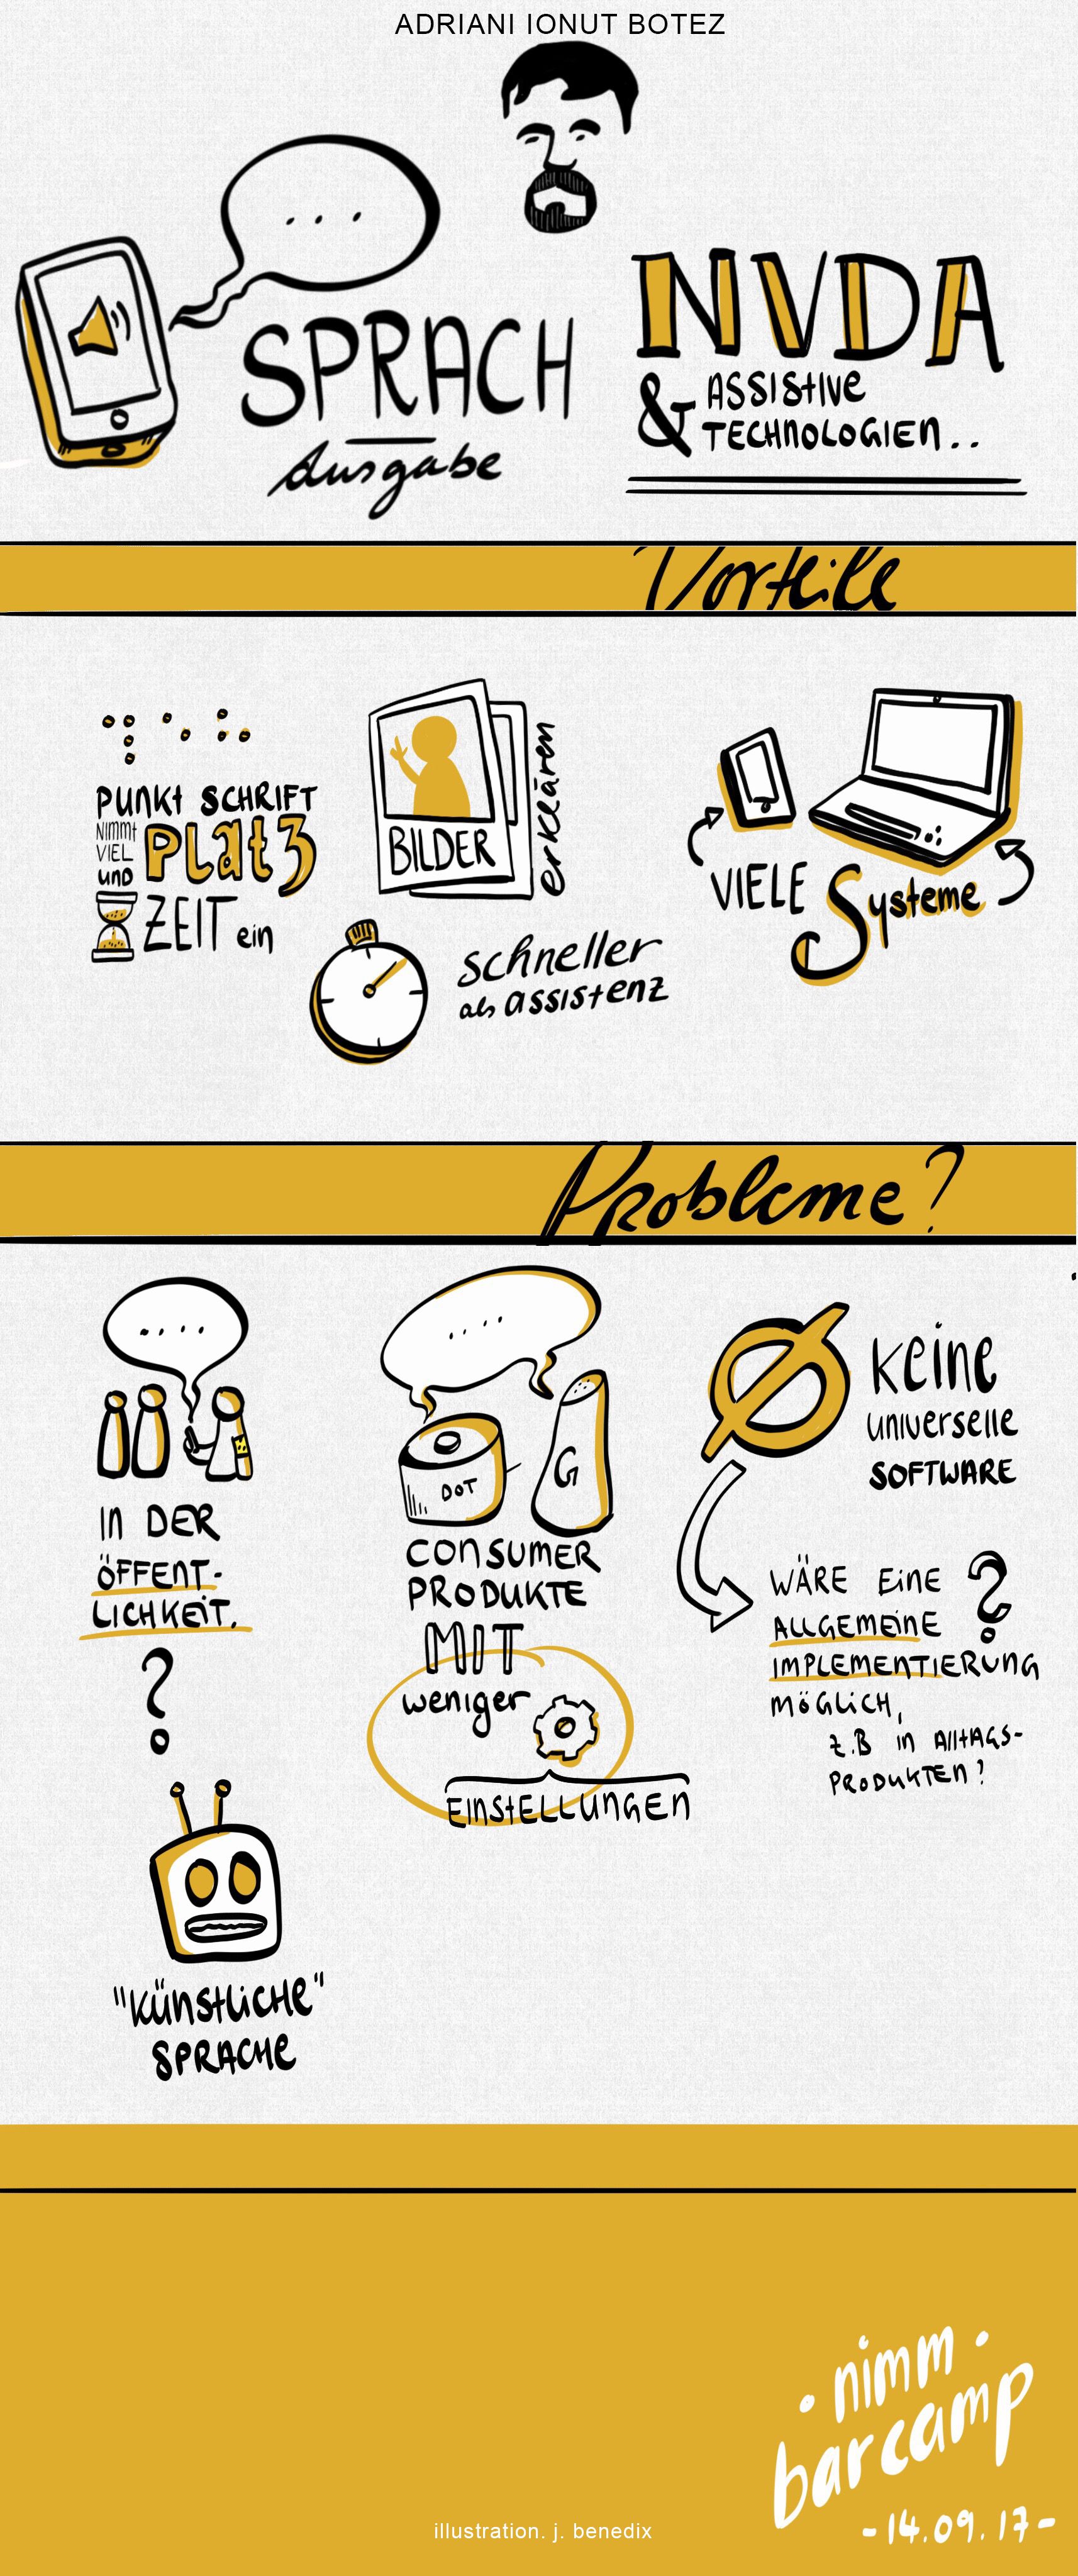 ADRIANI IONUT BOTEZ
...
SPRACH
Ausgabe
NVDA
& ASSIStIVE
TECHNOLOGIEN..
Vorteile
PUNKt SCHRIFT
NIMMt
VIEL
und
PLatz
ZEIT ein
BILDER
erklären
schneller
als assistenz
VIELE Systeme
Probleme?
....
IN DER
ÖFFENT-
LICHKEIT.
?
"KÜNStLICHE"
SPRACHE
....
DOT
G
CONSUMER
PRODUKTE
MIT
weniger
EINStELLUNGEN
Ø
keine
universelle
SOFTWARE
WÄRE EINE ?
ALLGEMEINE
IMPLEMENTIERUNG
MÖGLICH,
z.B in AlltAGS-
PRODUKTEN?
. nimm .
barcamp
-14.09.17-
illustration. j. benedix